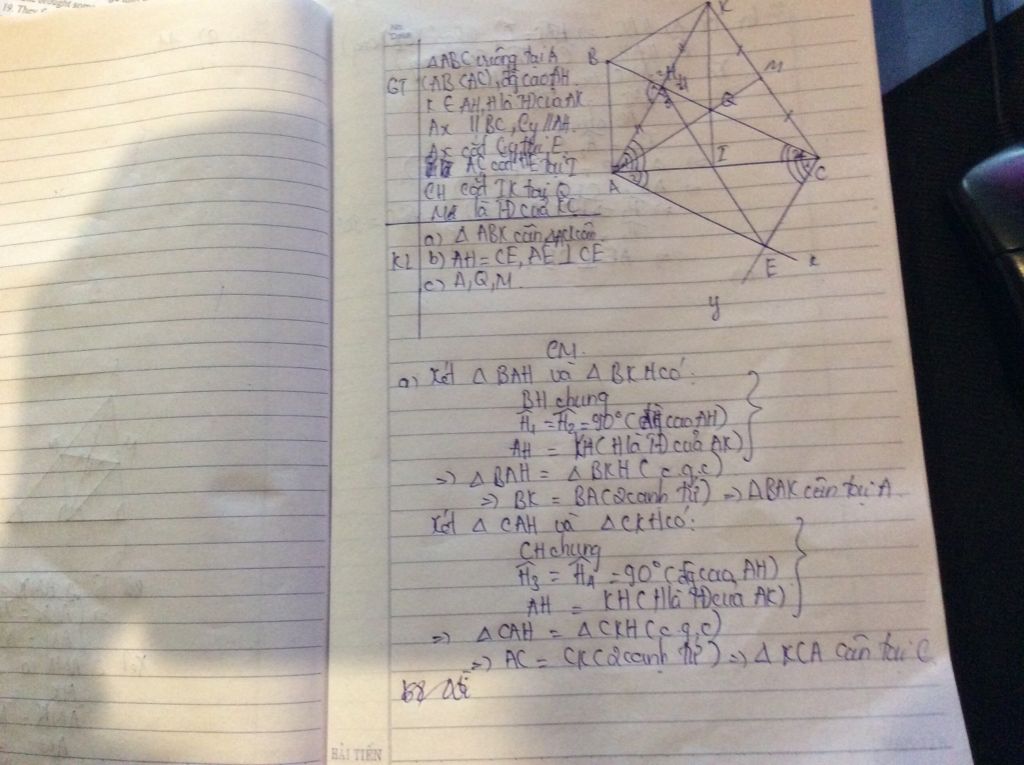 19. They
No.
Date
ΔABC vuông tại A
GT (AB<AC), đg cao AH
K ∈ AH, H là TĐ của AK
Ax // BC, Cy // AH
Ax cắt Cy tại E
AC cắt HE tại I
CH cắt IK tại Q
M là TĐ của KC
a) Δ ABK cân, ΔACK cân
KL b) AH = CE, AE ⊥ CE
c) A, Q, M
K
B
M
H
Q
I
A
C
E
x
y
CM.
a) Xét Δ BAH và Δ BKH có:
BH chung
Ĥ₁ = Ĥ₂ = 90° (đg cao AH)
AH = KH (H là TĐ của AK)
=> Δ BAH = Δ BKH (c.g.c)
=> BK = BA (2 cạnh tứ) => ΔBAK cân tại A
Xét Δ CAH và ΔCKH có:
CH chung
Ĥ₃ = Ĥ₄ = 90° (đg cao AH)
AH = KH (H là TĐ của AK)
=> Δ CAH = Δ CKH (c.g.c)
=> AC = CK (2 cạnh tứ) => Δ KCA cân tại C
BÀI TIẾN